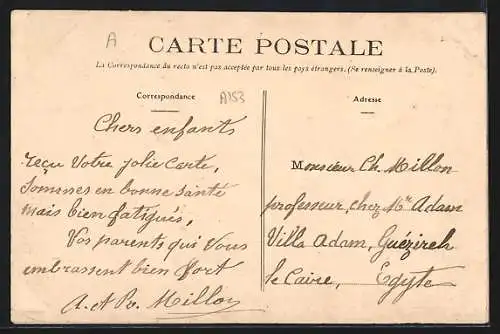 A
CARTE POSTALE
La Correspondance du recto n'est pas acceptée par tous les pays étrangers. (Se renseigner à la Poste).
Correspondance
A153
Adresse
Chers enfants
reçu Votre jolie Carte,
Sommes en bonne santé
mais bien fatigués,
Vos parents qui Vous
embrassent bien fort
A. et Millon
Monsieur Ch. Millon
professeur, chez Mr Adam
Villa Adam, Guézireh
le Caire, Egypte